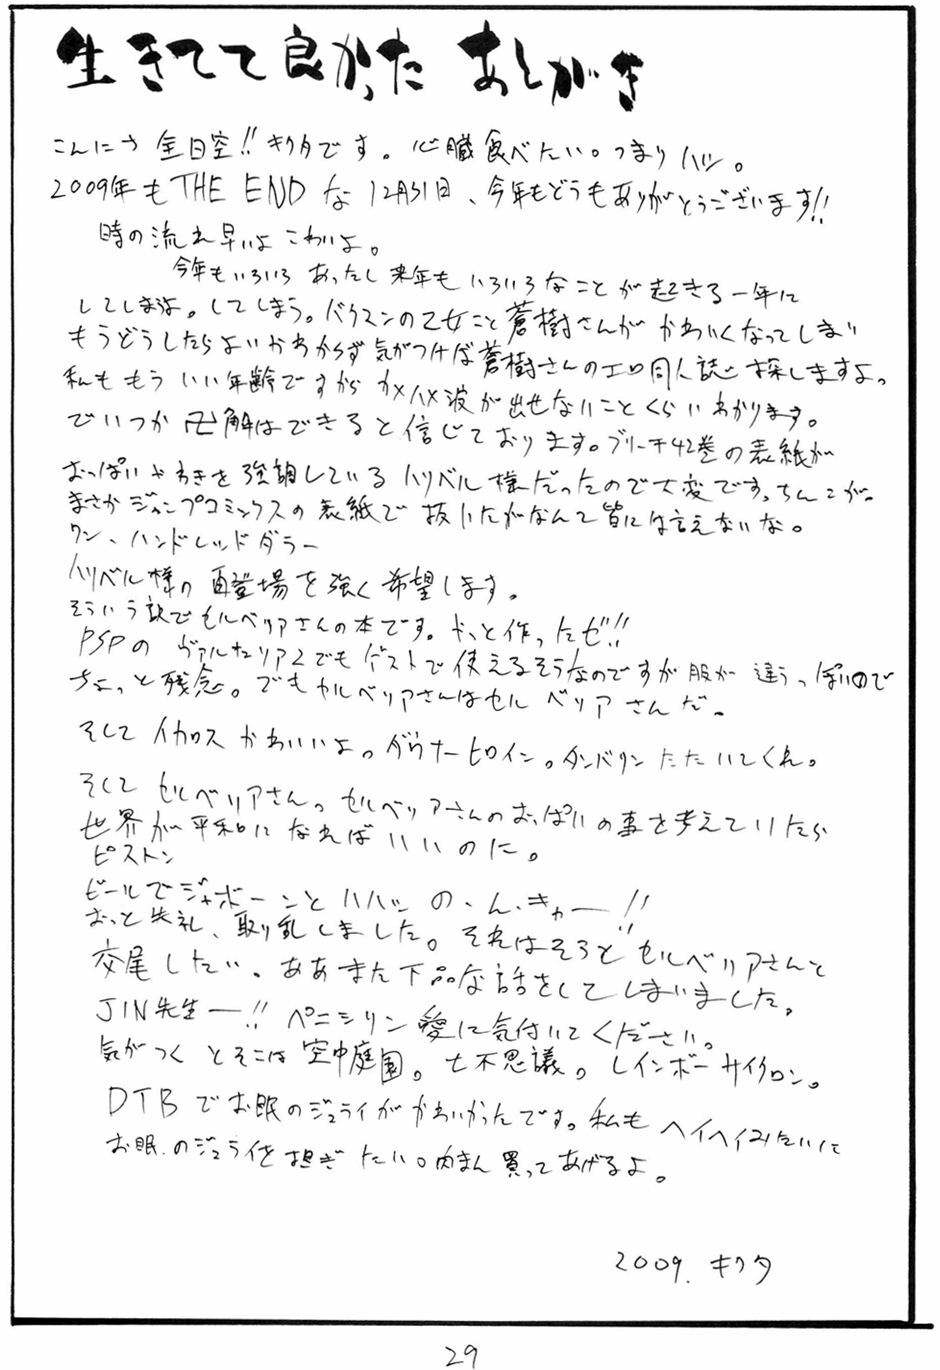 生きてて良かった あとがき
こんにち 全日空!! キクタです。心臓食べたい。つまりハツ。
2009年もTHE ENDな12月31日、今年もどうもありがとうございます!!
時の流れ早いよ こわいよ。
今年もいろいろ あったし来年も いろいろなことが起きる一年に
してしまうよ。してしまう。バクマンの乙女こと蒼樹さんが かわいくなってしまい
もうどうしたらよいかわからず気がつけば蒼樹さんのエロ同人誌を探しますよ。
私ももう いい年齢ですから カメハメ波が出せないことくらいわかります。
でいつか卍解はできると信じております。ブリーチ42巻の表紙が
おっぱいやわきを強調している ハリベル様だったので大変です。ちんこが。
まさかジャンプコミックスの表紙で 抜いたがなんて皆には言えないな。
ワン、ハンドレッドダラー
ハリベル様の再登場を強く希望します。
そういう訳でセルベリアさんの本です。やっと作ったぜ!!
PSPの ヴァルキュリア2でもゲストで使えるそうなのですが服が 違うっぽいので
ちょっと残念。でもセルベリアさんはセルベリアさんだ。
そして イカロス かわいいよ。ダウナーヒロイン。タンバリン たたいてくれ。
そして セルベリアさん。セルベリアさんのおっぱいの事を考えていたら
世界が平和になればいいのに。
ピストン
ビールでジャボーンとハハッ の、ん、きゃー!!
おっと失礼、取り乱しました。それはそうと セルベリアさんと
交尾したい。ああまた下品な話をしてしまいました。
JIN先生ー!! ペニシリン愛に気付いてください。
気がつく とそこは 空中庭園。七不思議。レインボーサイクロン。
DTBでお眠のジュライがかわいかったです。私も ヘイヘイみたいに
お眠のジュライを担ぎたい。肉まん買ってあげるよ。
2009. キクタ
29